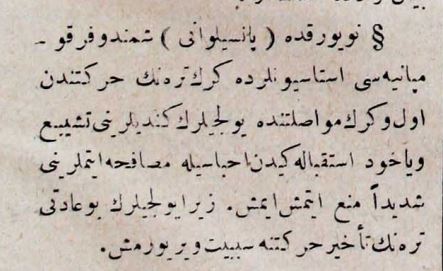 § نویورقده ( پانسیلوانی ) شمندوفر قو -
مپانیه‌سی استاسیونلرده کرک تره‌نک حرکتندن
اول وکرک مواصلتنده یولجیلرک کندیلرینی تشییع
ویاخود استقباله کیدن احباسیله مصافحه ایتملرینی
شدیداً منع ایتمش ایمش. زیرا یولجیلرک بو عادتی
تره‌نک تأخیر حرکتنه سببیت ویریورمش.